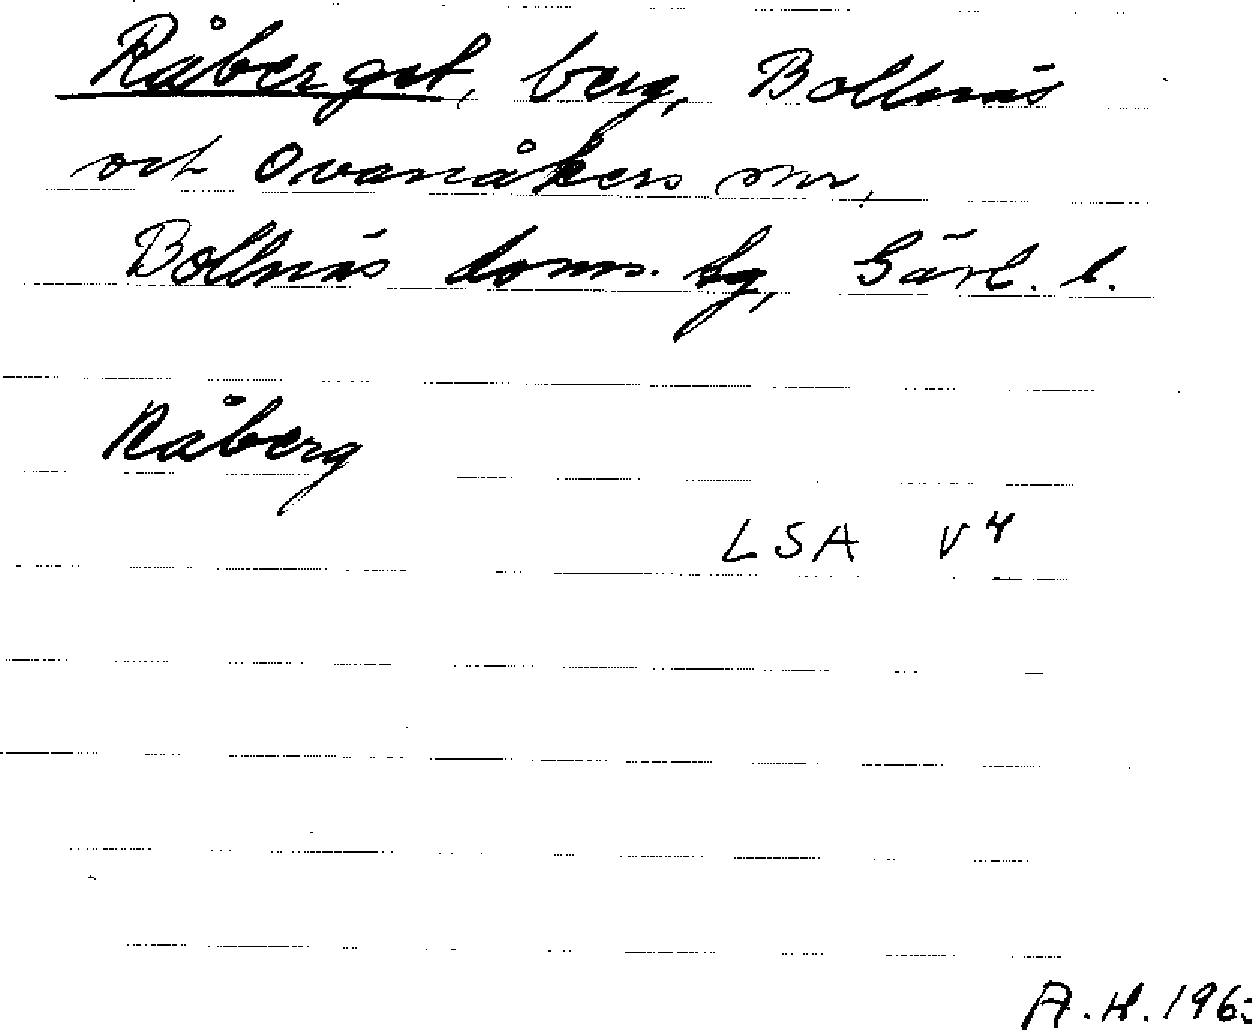 Råberget, berg, Bollnäs
och Ovanåkers snr,
Bollnäs doms. tg, Gävl. l.
Råberg
LSA V4
A.H. 196